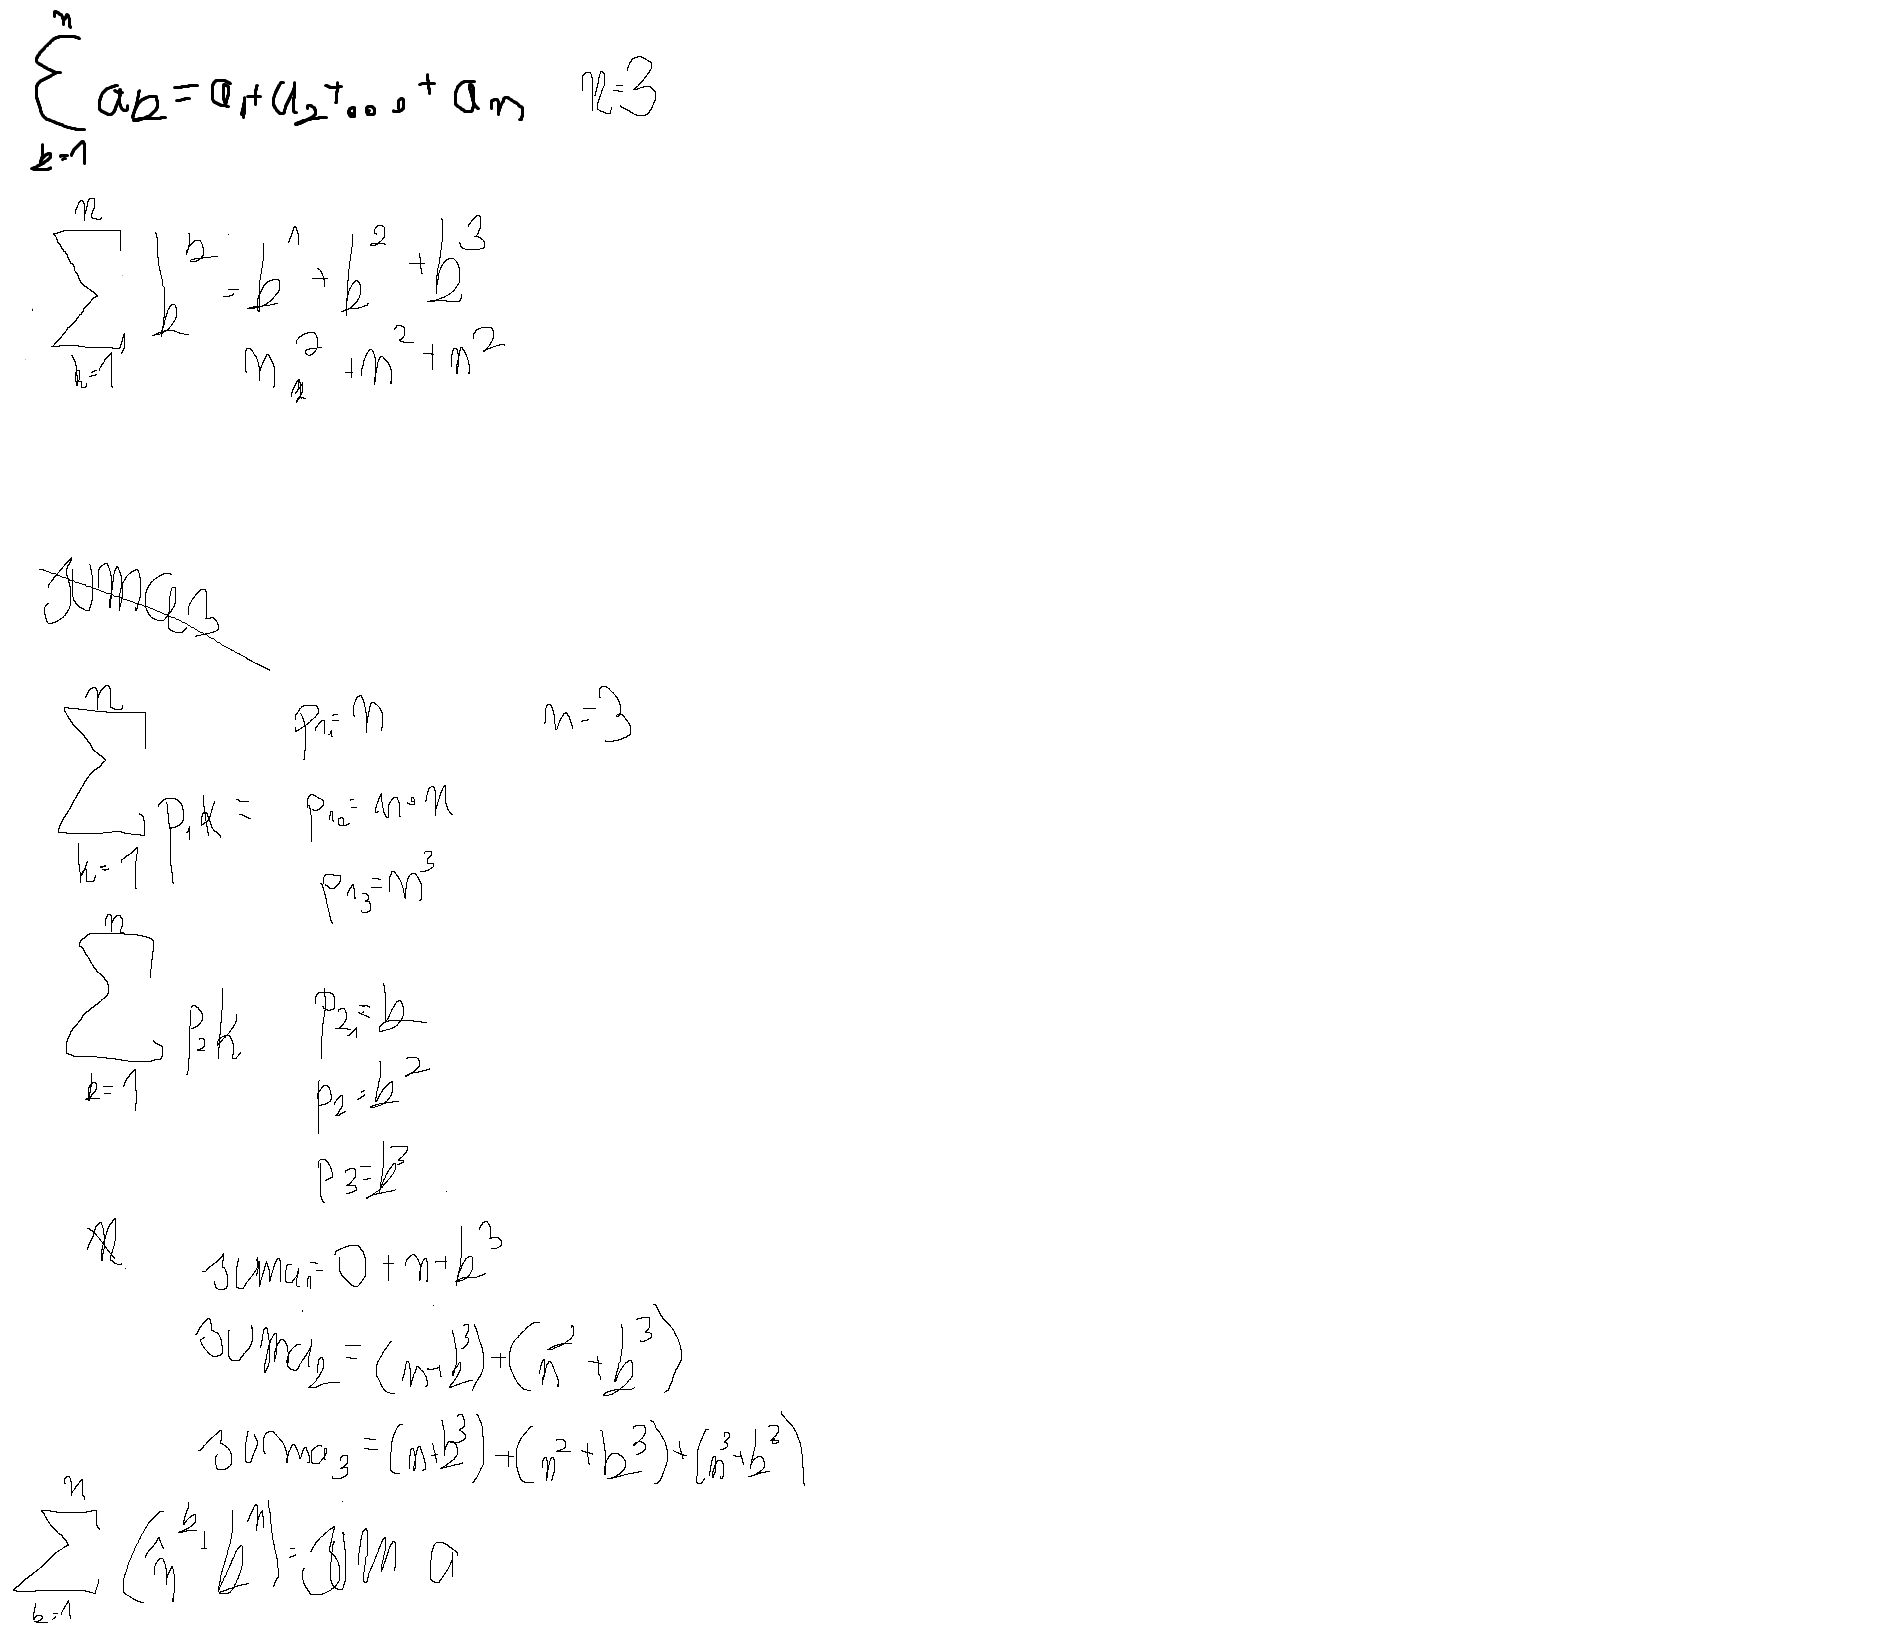 n
∑ ak = a₁ + a₂ + ... + aₙ n=3
k=1
n
∑ k^k = k¹ + k² + k³
k=1 n² + n² + n²
suma₃
n
∑ p₁k = p₁₁ = n n=3
k=1 p₁₂ = n·n
p₁₃ = n³
n
∑ p₂k p₂₁ = k
k=1 p₂ = k²
p3 = k³
n
suma₁ = 0 + n + k³
suma₂ = (n+k³) + (n² + k³)
suma₃ = (n+k³) + (n² + k³) + (n³ + k³)
n
∑ (n^k + k^n) = suma
k=1